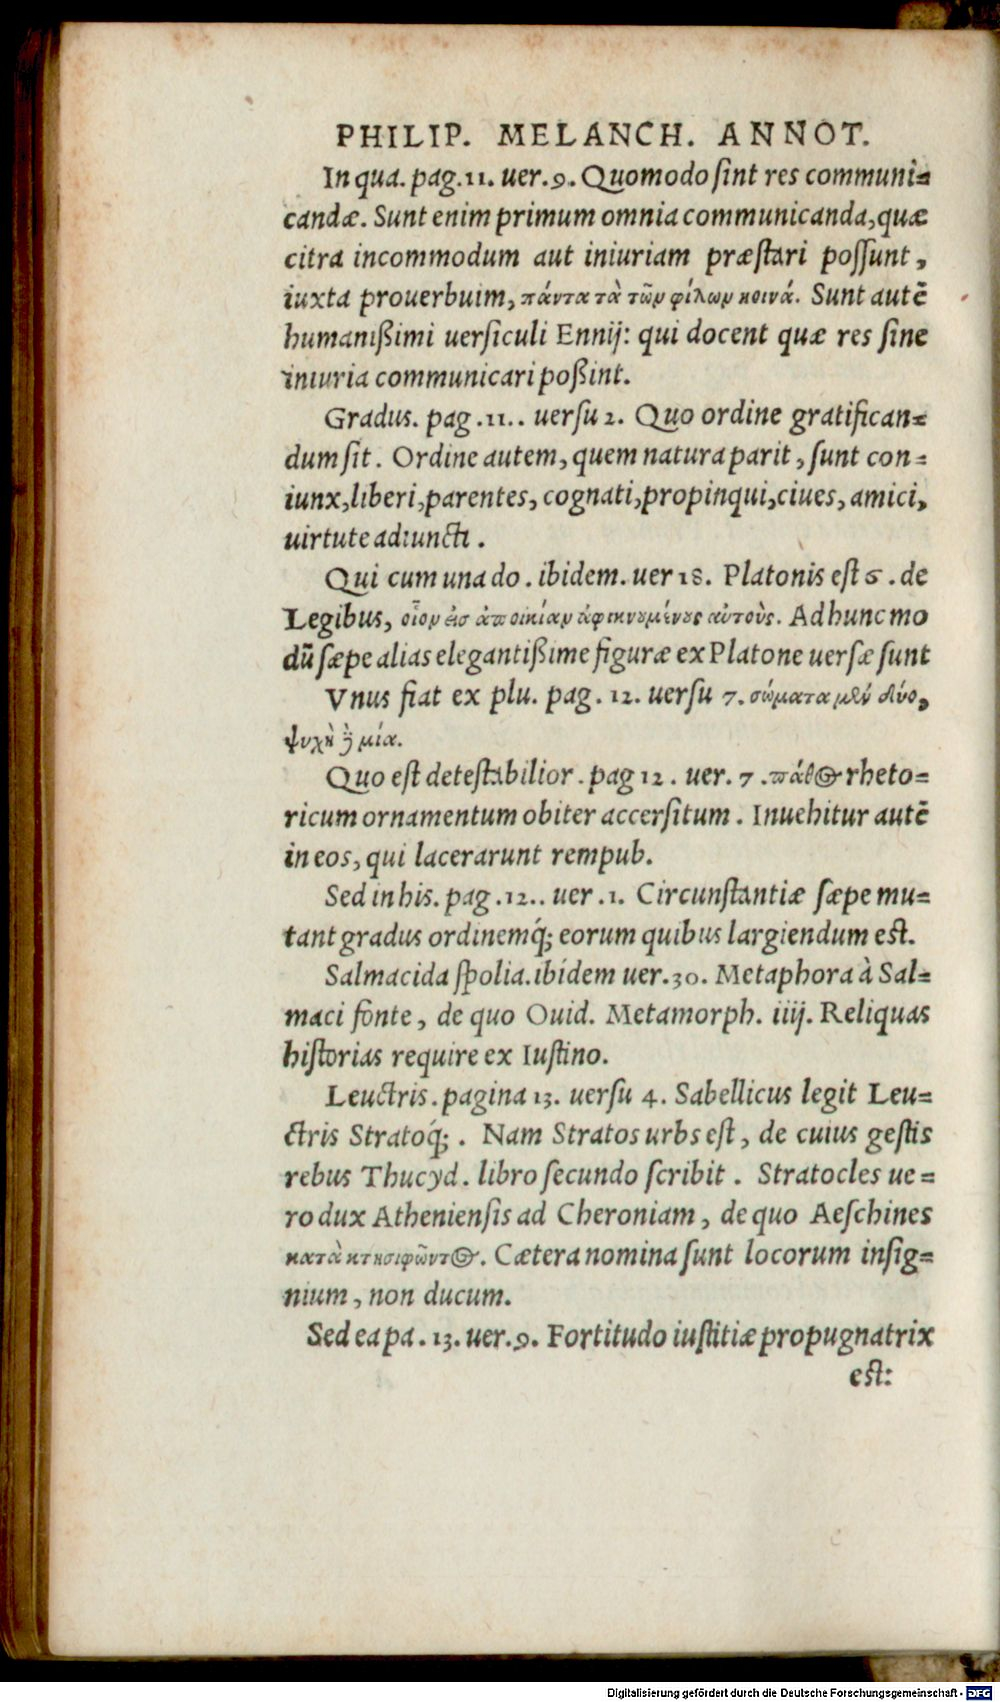 PHILIP. MELANCH. ANNOT.
In qua. pag. 11. uer. 9. Quomodo sint res communi=
candæ. Sunt enim primum omnia communicanda, quæ
citra incommodum aut iniuriam præstari possunt,
iuxta prouerbuim, πάντα τὰ τῶν φίλων κοινά. Sunt autē
humanißimi uersiculi Ennij: qui docent quæ res sine
iniuria communicari poßint.
Gradus. pag. 11.. uersu 2. Quo ordine gratifican=
dum sit. Ordine autem, quem natura parit, sunt con=
iunx, liberi, parentes, cognati, propinqui, ciues, amici,
uirtute adiuncti.
Qui cum una do. ibidem. uer 18. Platonis est 6. de
Legibus, οἷον εἰσ ἀποικίαν ἀφικνουμένους αὐτοὺς. Ad hunc mo
dũ sæpe alias elegantißime figuræ ex Platone uersæ sunt
Vnus fiat ex plu. pag. 12. uersu 7. σώματα μὲν δύο,
ψυχὴ δὲ μία.
Quo est detestabilior. pag 12. uer. 7. πάθος rheto=
ricum ornamentum obiter accersitum. Inuehitur autē
in eos, qui lacerarunt rempub.
Sed in his. pag. 12.. uer. 1. Circunstantiæ sæpe mu=
tant gradus ordinemq́; eorum quibus largiendum est.
Salmacida spolia. ibidem uer. 30. Metaphora à Sal=
maci fonte, de quo Ouid. Metamorph. iiij. Reliquas
historias require ex Iustino.
Leuctris. pagina 13. uersu 4. Sabellicus legit Leu=
ctris Stratoq́;. Nam Stratos urbs est, de cuius gestis
rebus Thucyd. libro secundo scribit. Stratocles ue=
ro dux Atheniensis ad Cheroniam, de quo Aeschines
κατὰ κτησιφῶντος. Cætera nomina sunt locorum insig=
nium, non ducum.
Sed ea pa. 13. uer. 9. Fortitudo iustitiæ propugnatrix
est:
Digitalisierung gefördert durch die Deutsche Forschungsgemeinschaft - DFG